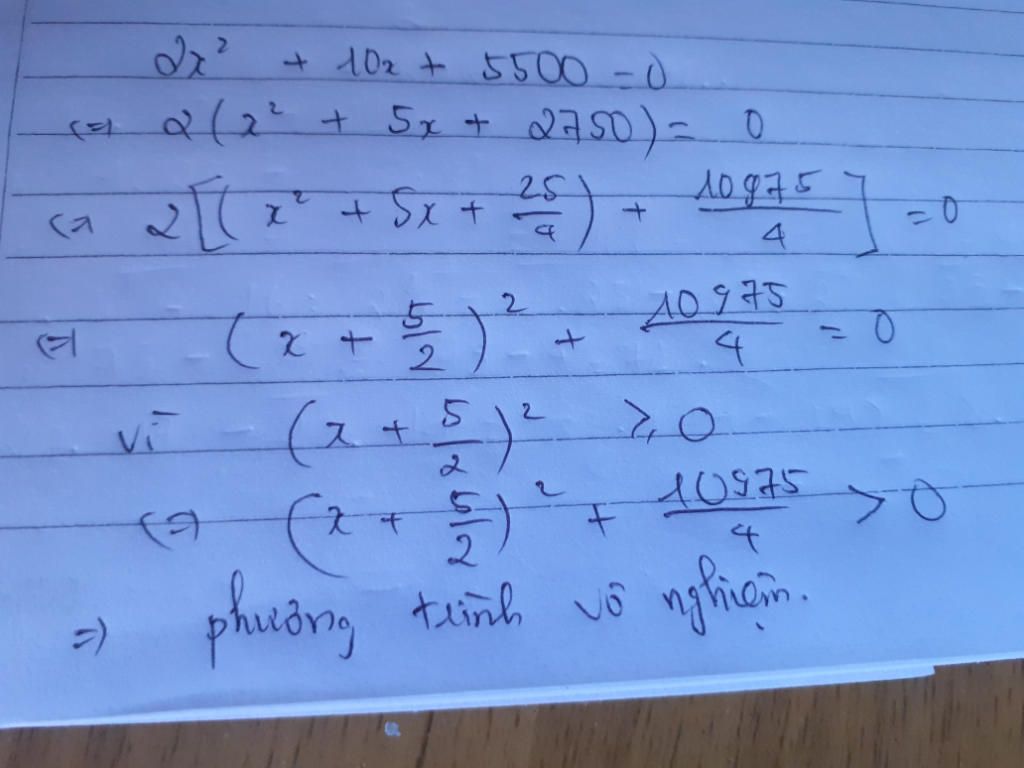 2x² + 10x + 5500 = 0
⇔ 2(x² + 5x + 2750) = 0
⇔ 2[(x² + 5x + 25/4) + 10975/4] = 0
⇔ (x + 5/2)² + 10975/4 = 0
vì (x + 5/2)² ≥ 0
⇔ (x + 5/2)² + 10975/4 > 0
⇒ phương trình vô nghiệm.